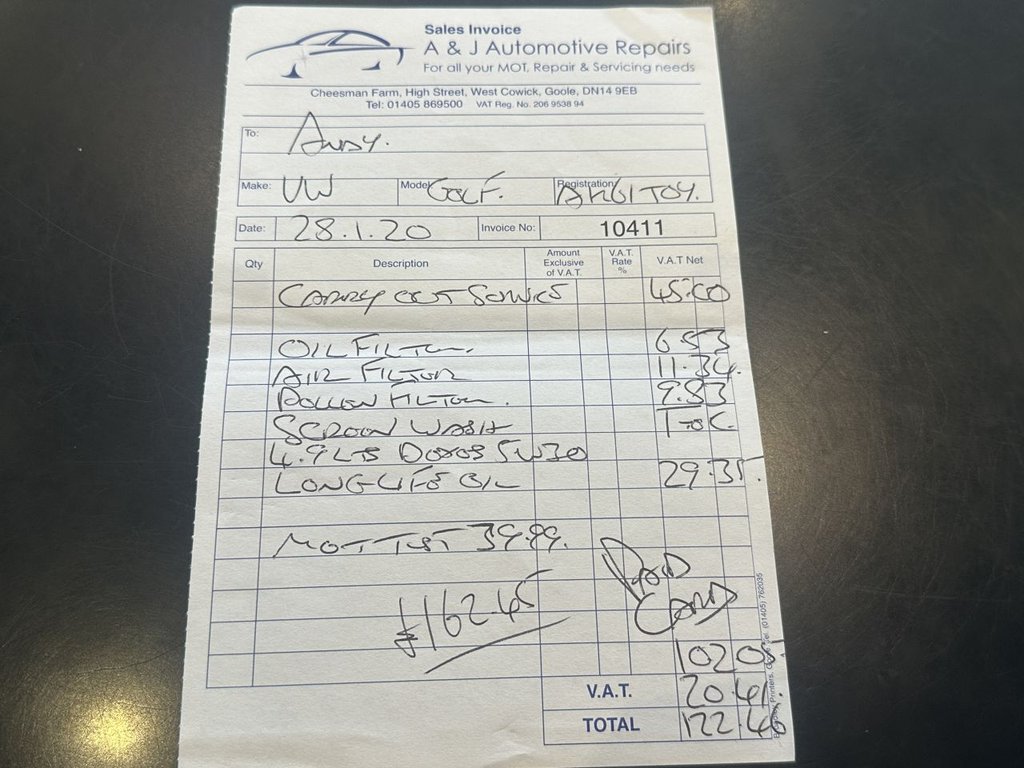 Sales Invoice
A & J Automotive Repairs
For all your MOT, Repair & Servicing needs
Cheesman Farm, High Street, West Cowick, Goole, DN14 9EB
Tel: 01405 869500 VAT Reg. No. 206 9538 94
To: ANDY.
Make: VW Model GOLF. Registration
Date: 28.1.20 Invoice No: 10411
Qty Description Amount Exclusive of V.A.T. V.A.T. Rate % V.A.T Net
CARRY OUT SERVICE 45.00
OIL FILTER. 6.53
AIR FILTER 11.34.
POLLEN FILTER. 9.83
SCREEN WASH T.O.C.
4.9 LTS 5W30
LONGLIFE OIL 29.35.
MOT TEST 39.99.
PAID
CARD
£162.45
102 05
V.A.T. 20.41.
TOTAL 122.46
Printers, Goole. Tel. (01405) 762035